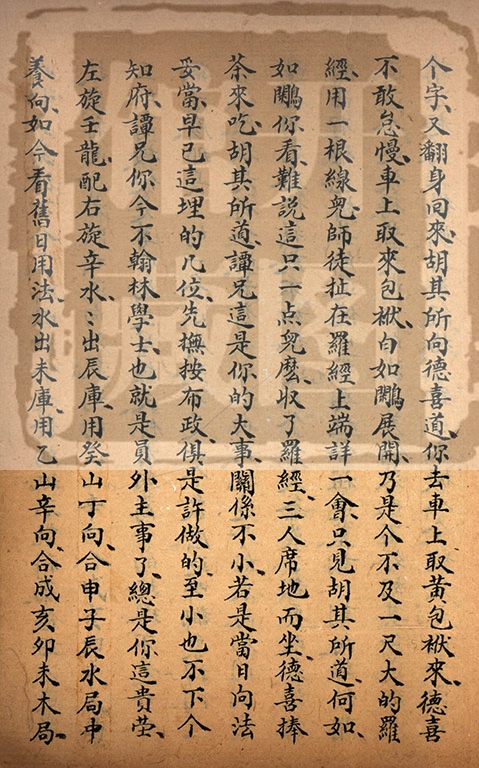 个字、又翻身回來、胡其所向德喜道、你去車上取黃包袱來、德喜
不敢怠慢、車上取來包袱、白如鷴展開、乃是个不及一尺大的羅
經、用一根線兒、師徒扯在羅經上端詳一會、只見胡其所道、何如、
如鷴你看、難說這只一点兒麽、收了羅經、三人席地而坐、德喜捧
茶來吃、胡其所道、譚兄這是你的大事、關係不小、若是當日向法
妥當、早已這埋的几位、先撫按布政、俱是許做的、至小也不下个
知府、譚兄你今不翰林學士、也就是員外主事了、總是你這貴塋、
左旋壬龍、配右旋辛水、水出辰庫、用癸山丁向、合申子辰水局、中
養向、如今看舊日用法、水出未庫、用乙山辛向、合成亥卯未木局、